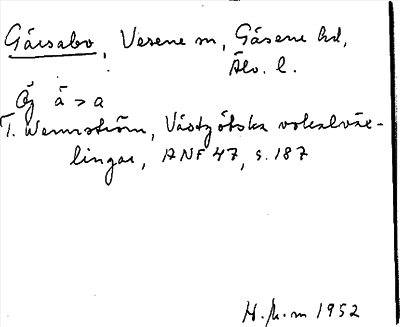 Gäesabo, Vesene sn, Gäsene hd,
Älv. l.
Ög ā > a
T. Wennström, Västgötska vokalväx-
lingar, ANF 47, s. 187
H. 1952